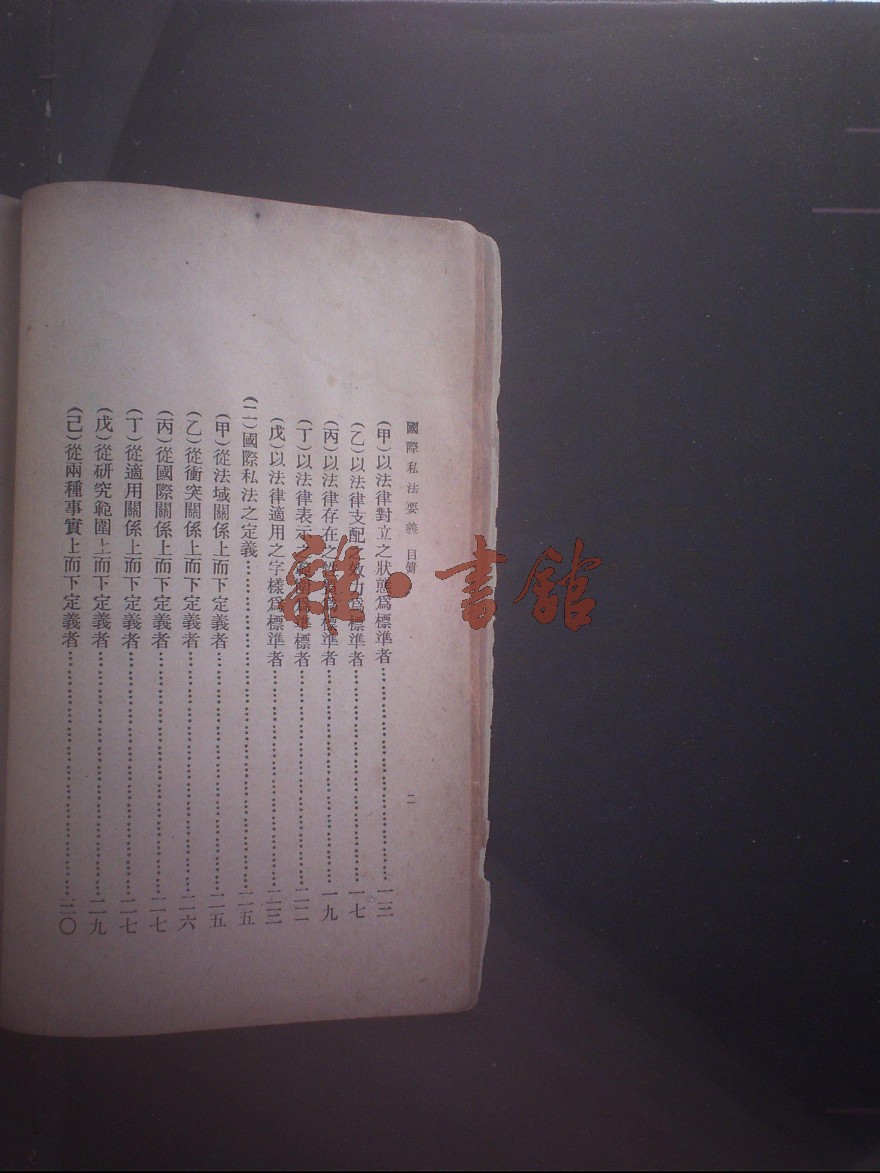 國際私法要義 目錄 二
(甲)以法律對立之狀態爲標準者……一三
(乙)以法律支配之效力爲標準者……一七
(丙)以法律存在之性質爲標準者……一九
(丁)以法律表示之範圍爲準標者……二二
(戊)以法律適用之字樣爲標準者……二三
(二)國際私法之定義……二五
(甲)從法域關係上而下定義者……二五
(乙)從衝突關係上而下定義者……二六
(丙)從國際關係上而下定義者……二七
(丁)從適用關係上而下定義者……二七
(戊)從研究範圍上而下定義者……二九
(己)從兩種事實上而下定義者……三〇
雜·書館